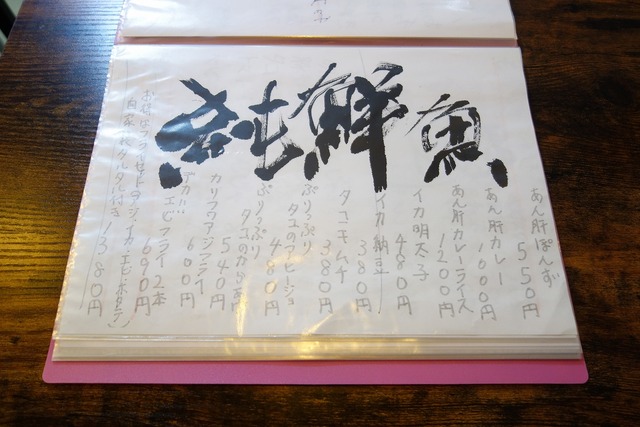 純鮮魚
あん肝ぽんず 550円
あん肝カレー 1000円
あん肝カレーライス 1200円
イカ明太子 480円
イカ納豆 380円
タコキムチ 380円
ぷりっぷりタコのアヒージョ 480円
ぷりっぷりタコのから揚げ 540円
カリフワアジフライ 600円
デカ!!エビフライ2本 690円
お昼はフライセット(アジ、イカ、エビ、ホタテ)
自家製タルタル付き 1380円